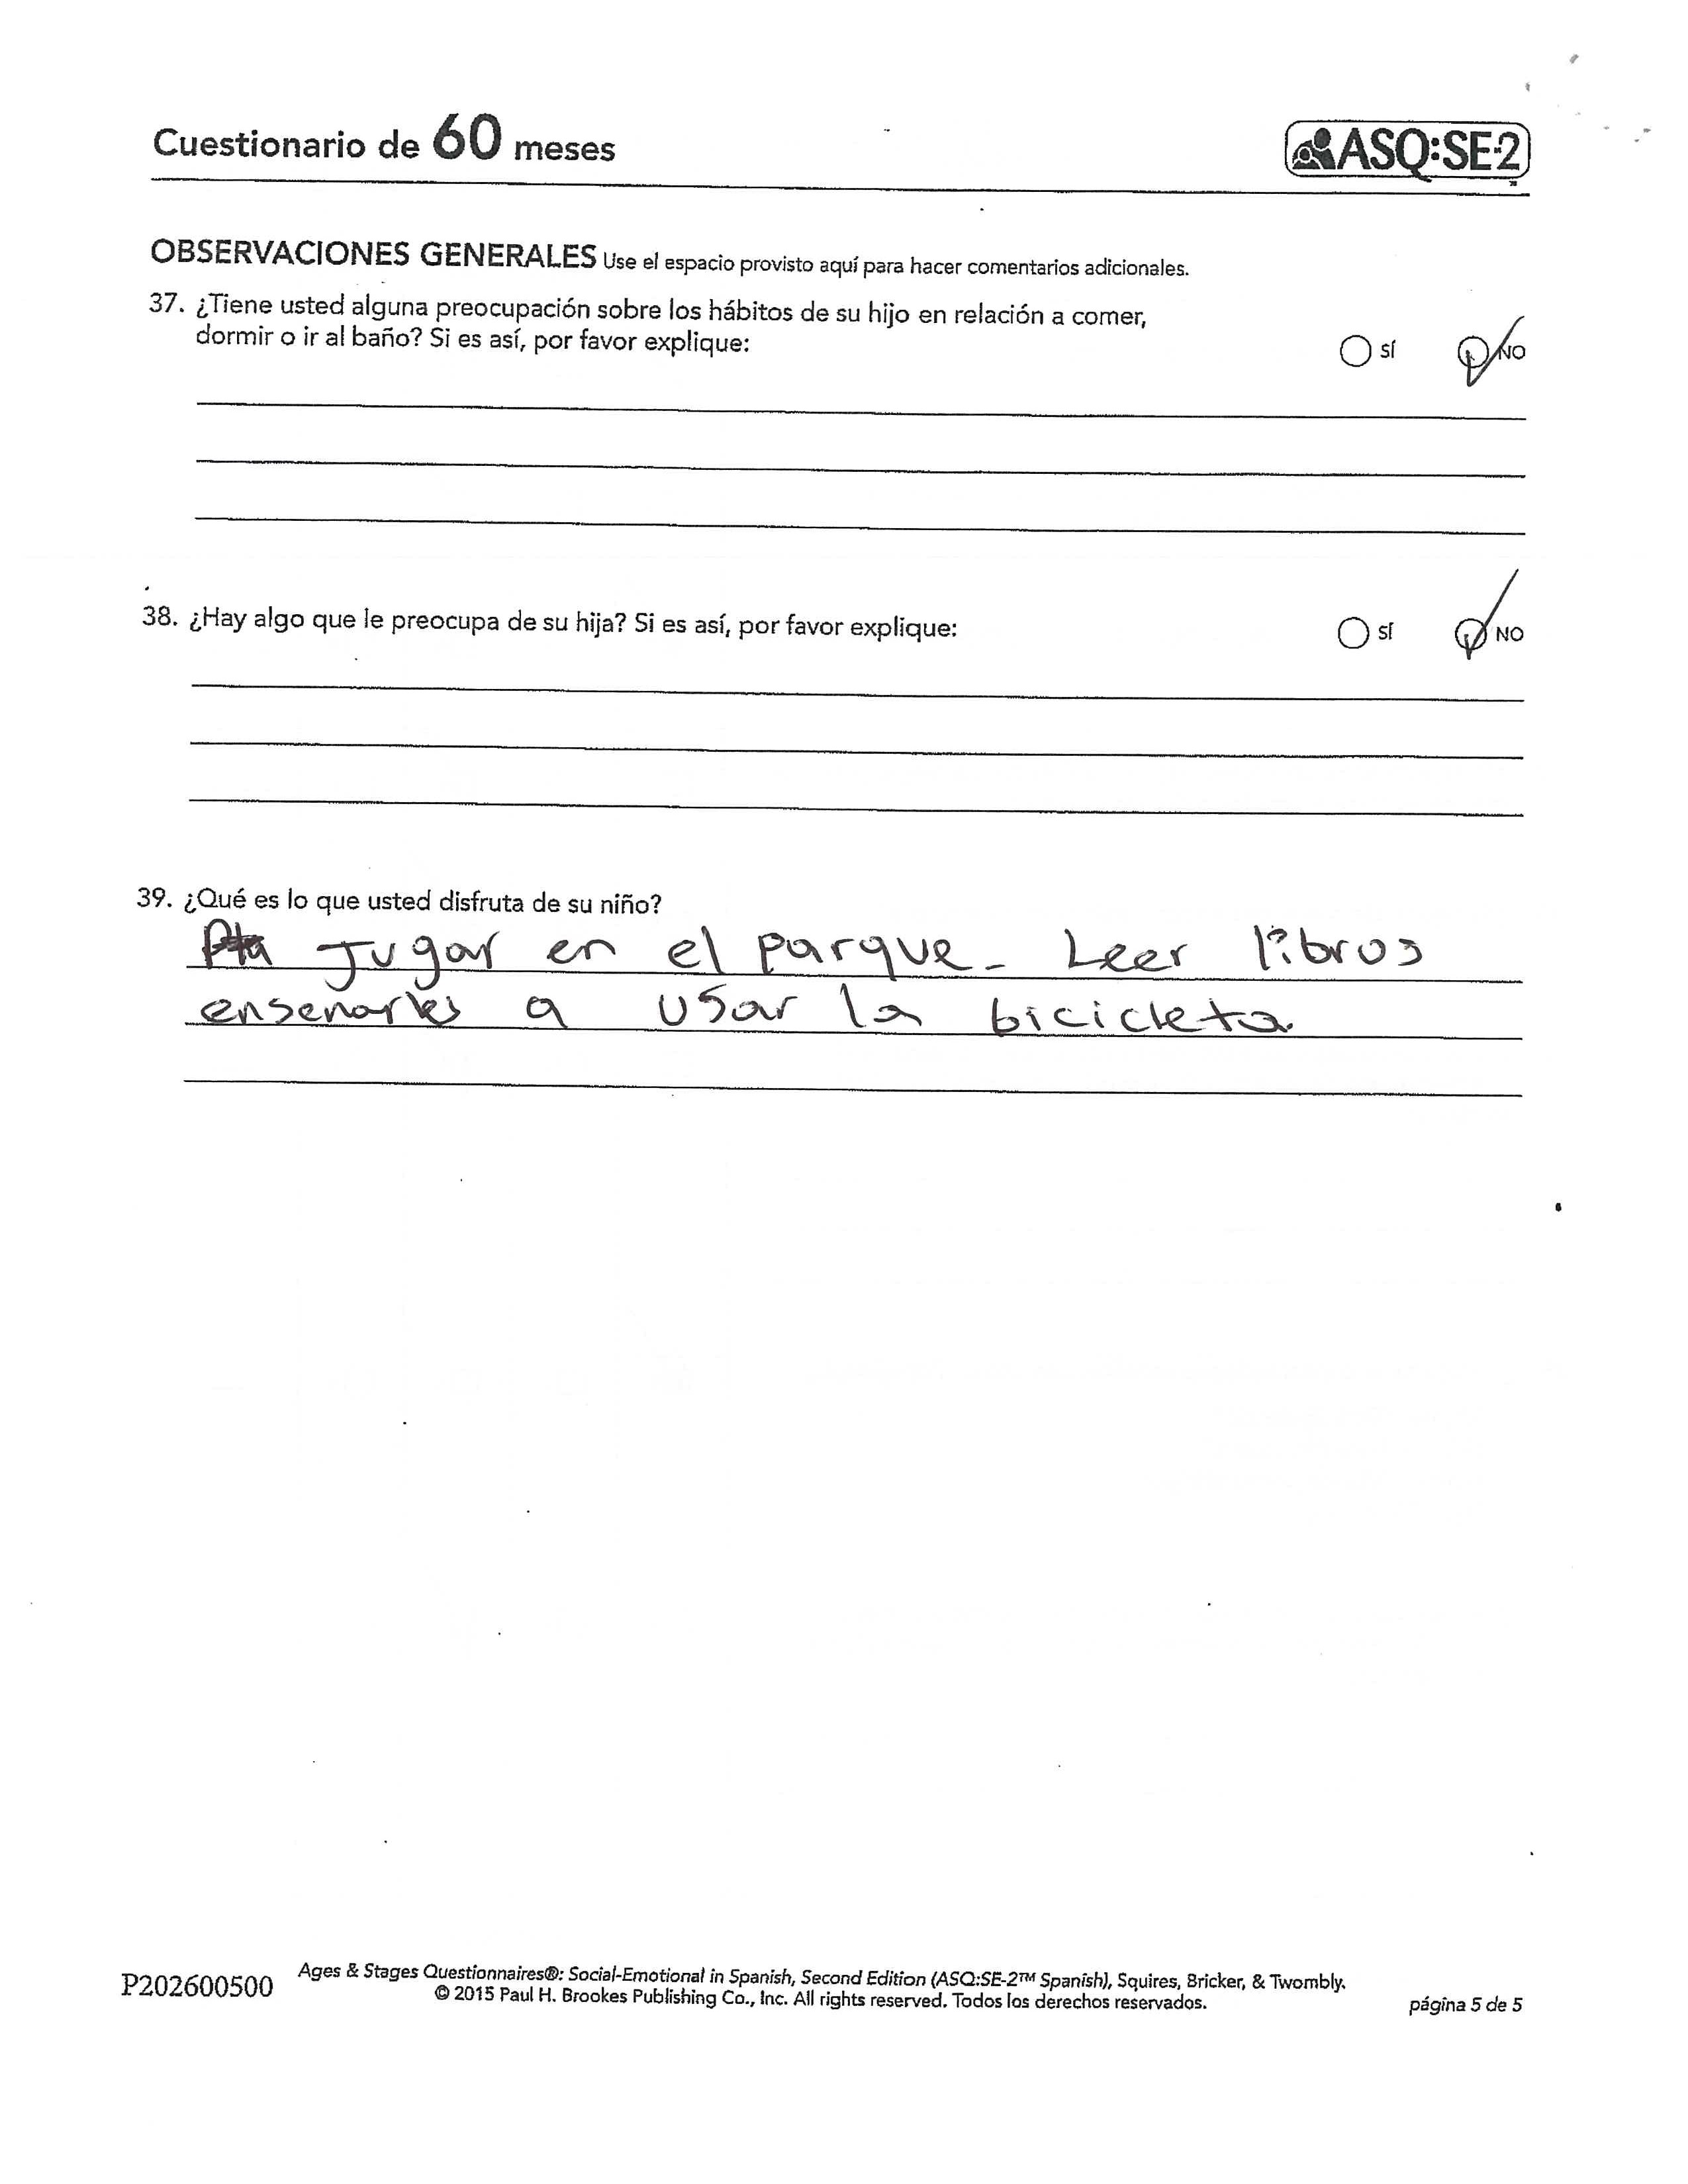 Cuestionario de 60 meses
ASQ:SE-2
OBSERVACIONES GENERALES Use el espacio provisto aquí para hacer comentarios adicionales.
37. ¿Tiene usted alguna preocupación sobre los hábitos de su hijo en relación a comer,
dormir o ir al baño? Si es así, por favor explique:
SÍ NO
38. ¿Hay algo que le preocupa de su hija? Si es así, por favor explique:
SÍ NO
39. ¿Qué es lo que usted disfruta de su niño?
Jugar en el parque. Leer libros
ensenarles a usar la bicicleta.
P202600500
Ages & Stages Questionnaires®: Social-Emotional in Spanish, Second Edition (ASQ:SE-2™ Spanish), Squires, Bricker, & Twombly.
© 2015 Paul H. Brookes Publishing Co., Inc. All rights reserved. Todos los derechos reservados.
página 5 de 5